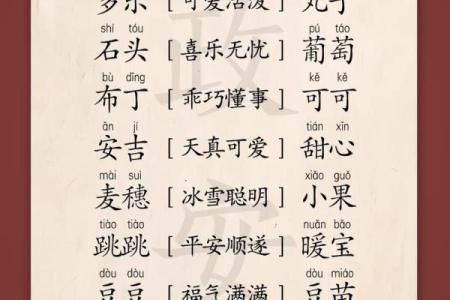 多乐 [ 可爱活泼 ] 丸子
shí tóu pú táo
石头 [ 喜乐无忧 ] 葡萄
bù dīng kě kě
布丁 [ 乖巧懂事 ] 可可
ān jí tián xīn
安吉 [ 天真可爱 ] 甜心
mài suì xiǎo guǒ
麦穗 [ 冰雪聪明 ] 小果
tiào tiào nuǎn bǎo
跳跳 [ 平安顺遂 ] 暖宝
dòu dòu dòu miáo
豆豆 [ 福气满满 ] 豆苗
政
安